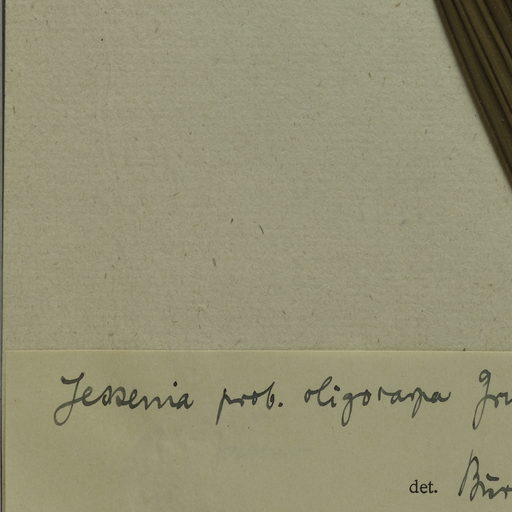 Jessenia prob. oligocarpa Gru
det. Bur